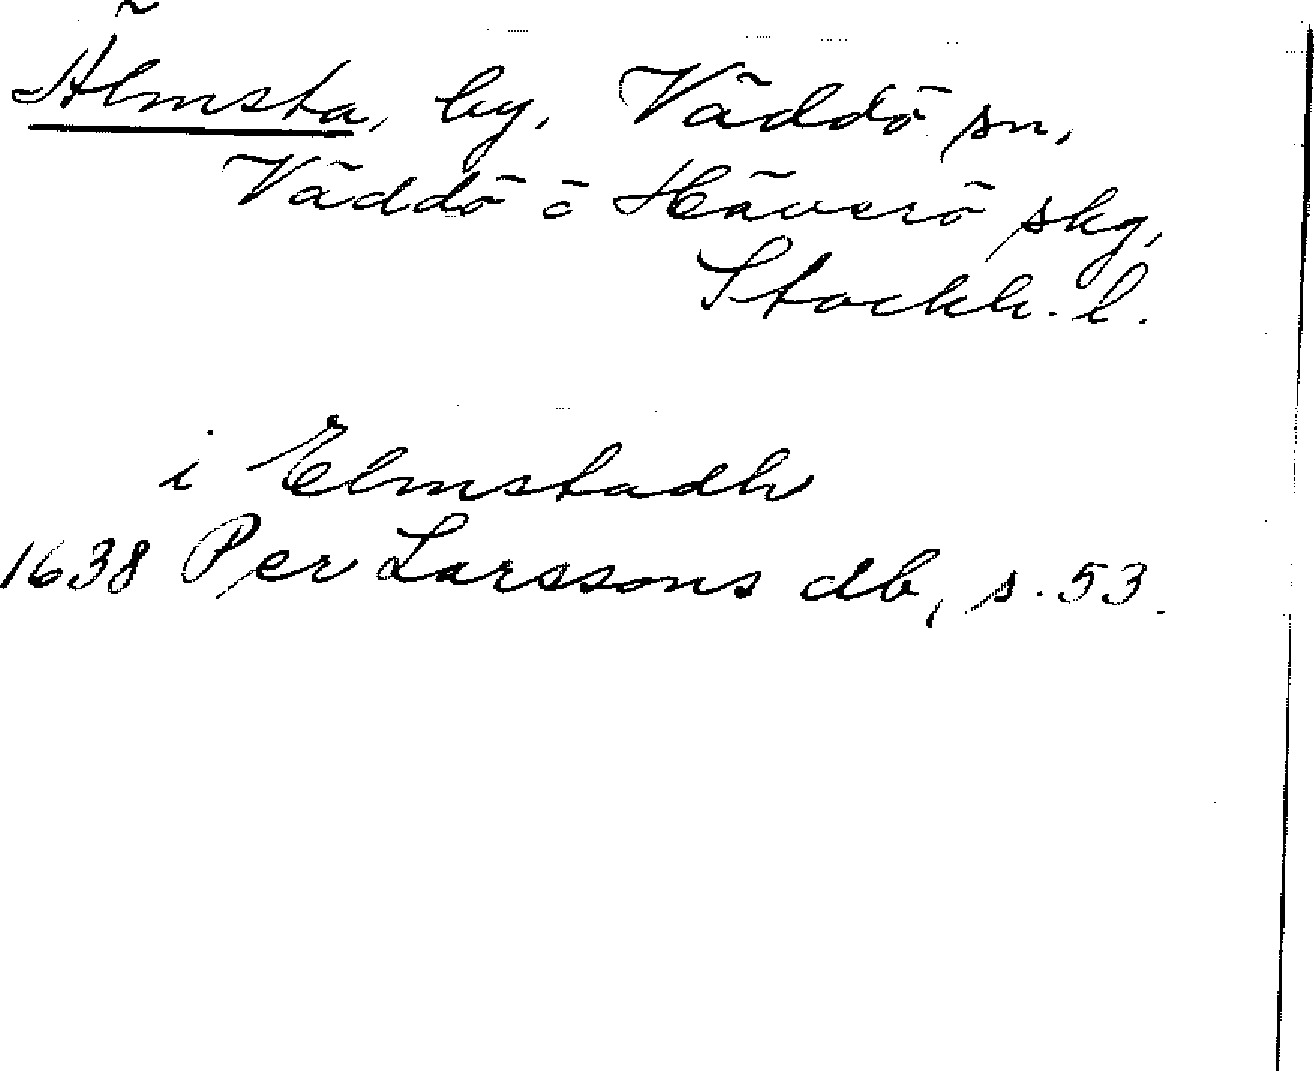 Älmsta, by, Väddö sn,
Väddö o Häverö skg,
Stockh. l.
i Elmstadh
1638 Per Larssons db, s. 53.